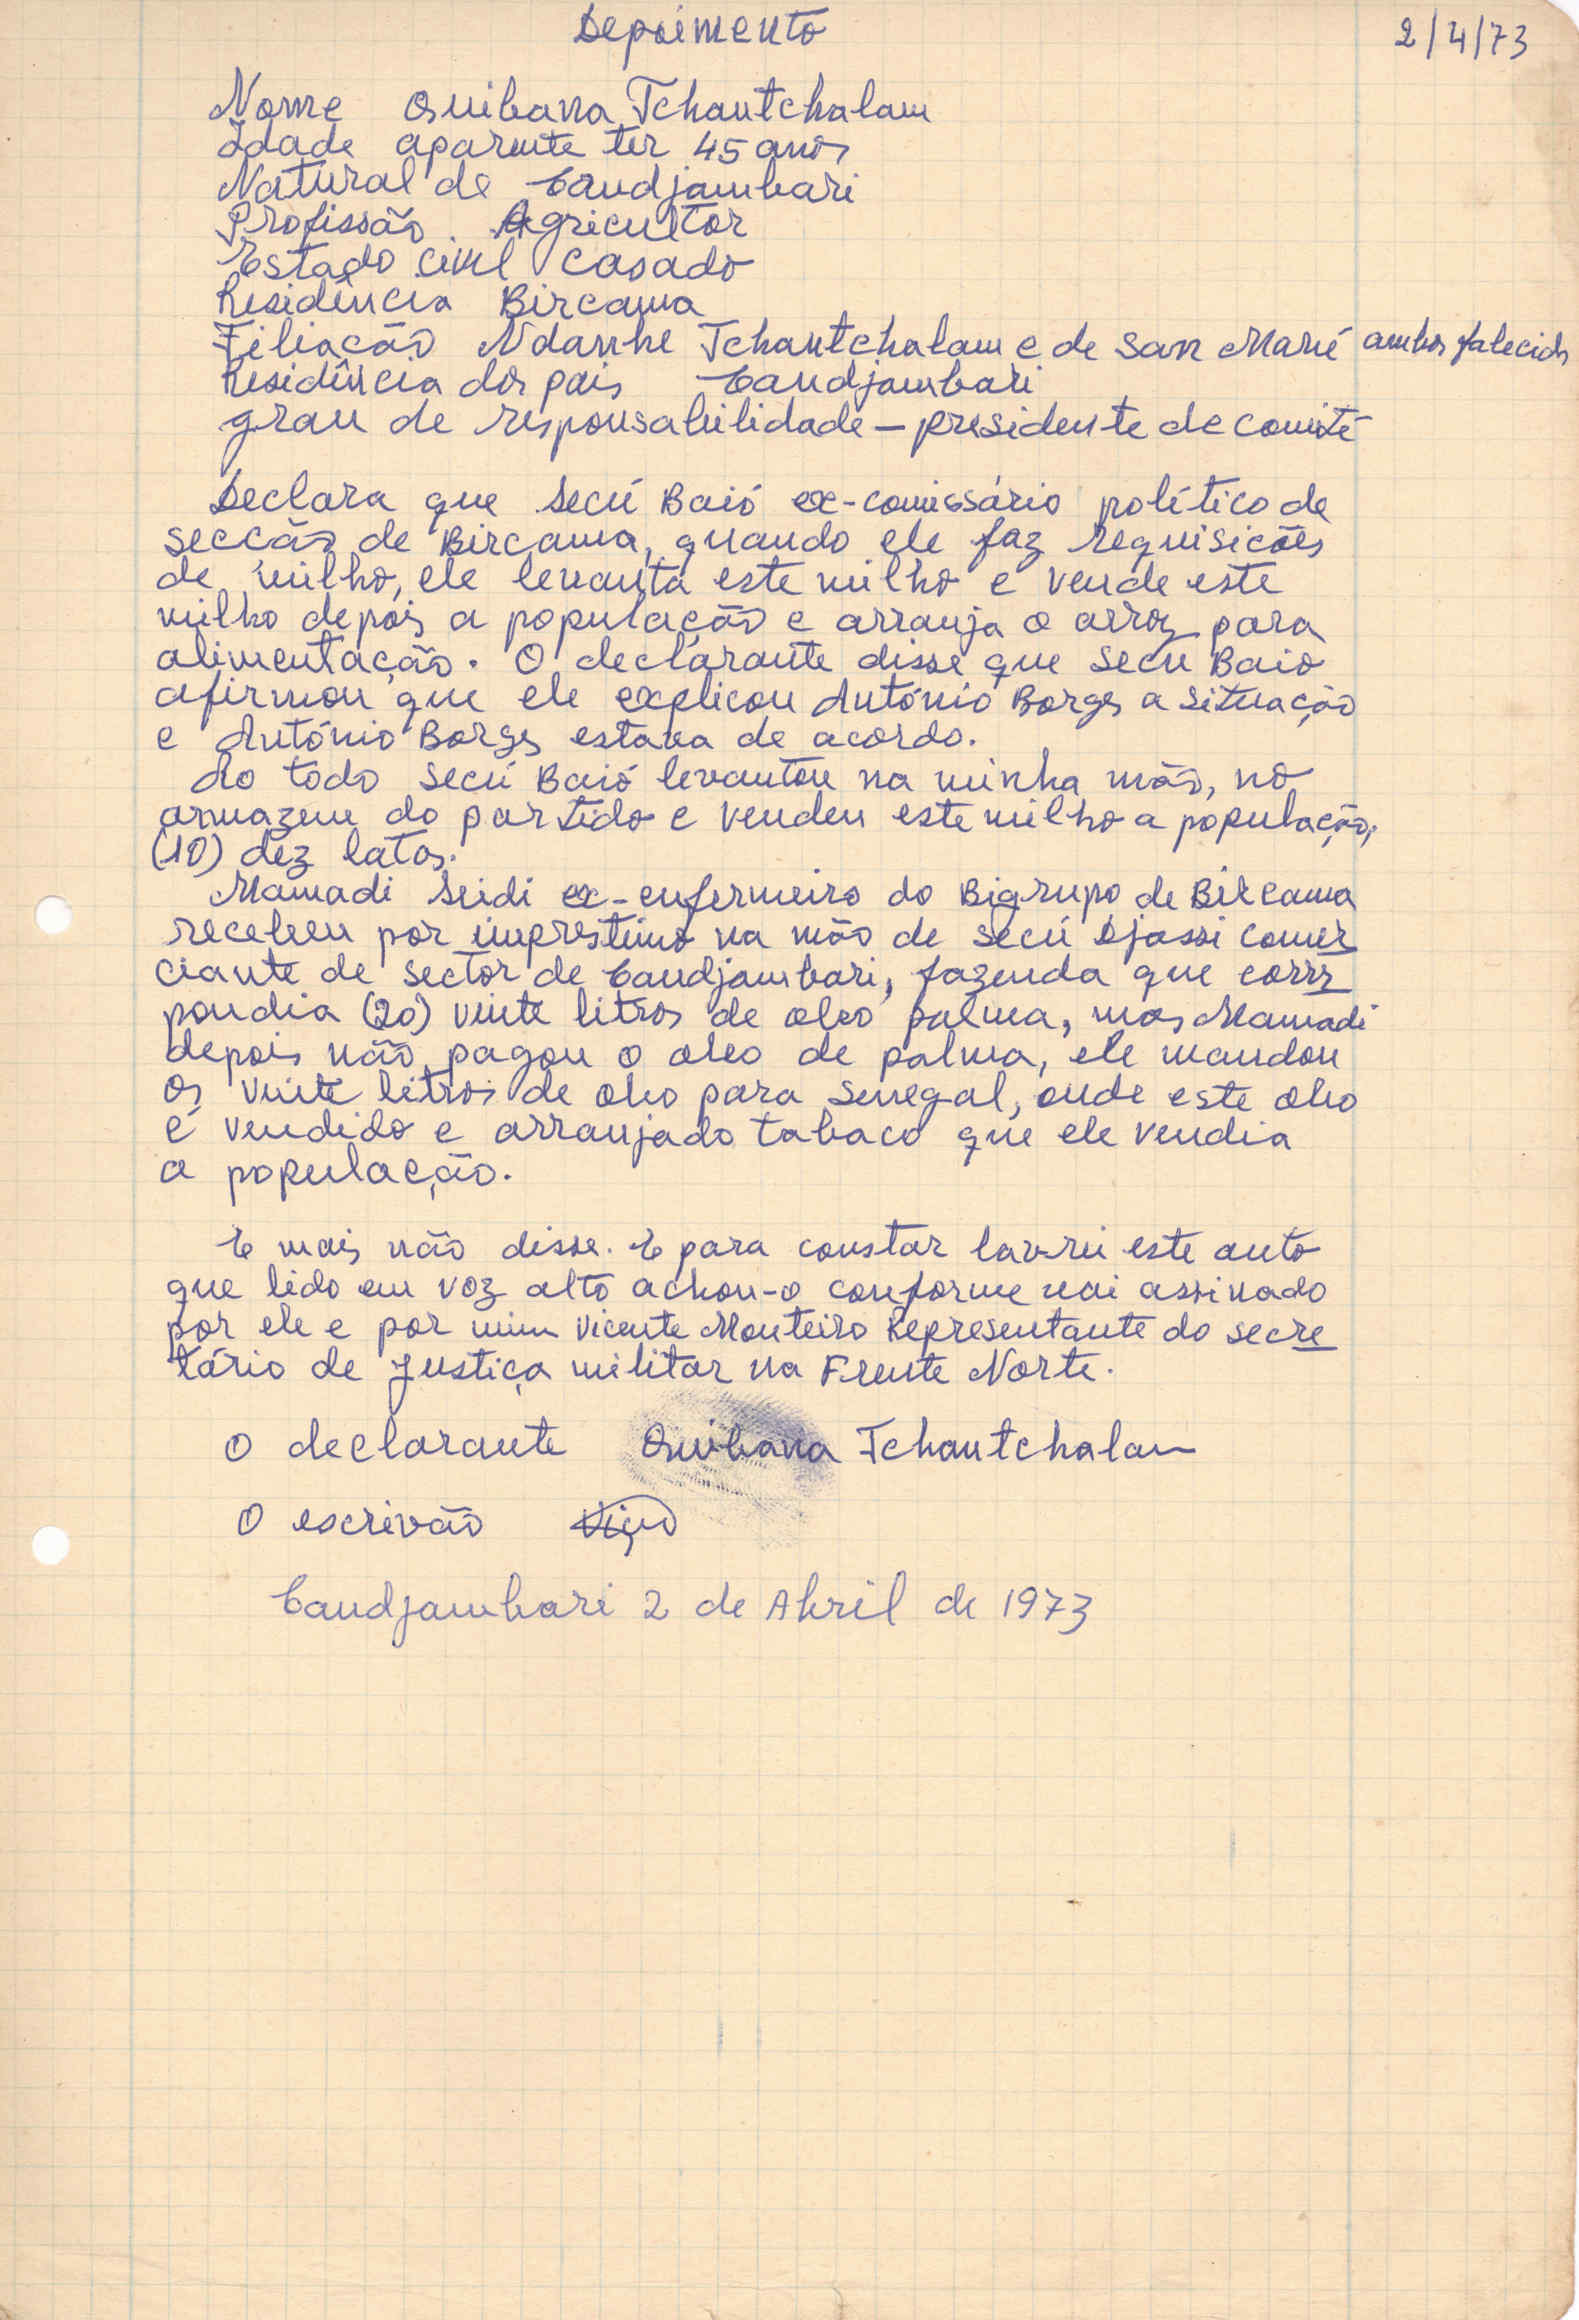 Depoimento
2/4/73
Nome Quibana Tchantchalam
Idade aparente ter 45 anos
Natural de Candjambari
Profissão Agricultor
Estado civil casado
Residência Bircama
Filiação Ndanhe Tchantchalam e de San Mané ambos falecidos
Residência dos pais Candjambari
grau de responsabilidade – presidente de comité
Declara que Secú Baió ex-comissário político de
secção de Bircama, quando ele faz requisicões
de milho, ele levanta este milho e vende este
milho depois a população e arranja o arroz para
alimentação. O declarante disse que Secu Baio
afirmou que ele explicou António Borges a situação
e António Borges estava de acordo.
Ao todo Secú Baió levantou na minha mão, no
armazem do partido e vendeu este milho a população,
(10) dez latas.
Mamadi Seidi ex-enfermeiro do Bigrupo de Bircama
recebeu por imprestimo na mão de Secú Djassi comer
ciante de sector de Candjambari, fazenda que corrz
pondia (20) vinte litros de oleo palma, mas Mamadi
depois não pagou o oleo de palma, ele mandou
os vinte litros de oleo para Senegal, onde este oleo
é vendido e arranjado tabaco que ele vendia
a população.
E mais não disse. E para constar lavrei este auto
que lido em voz alto achou-o conforme vai assinado
por ele e por mim Vicente Monteiro Representante do secre
tário de Justiça militar na Frente Norte.
O declarante Quibana Tchantchalam
O escrivão
Candjambari 2 de Abril de 1973